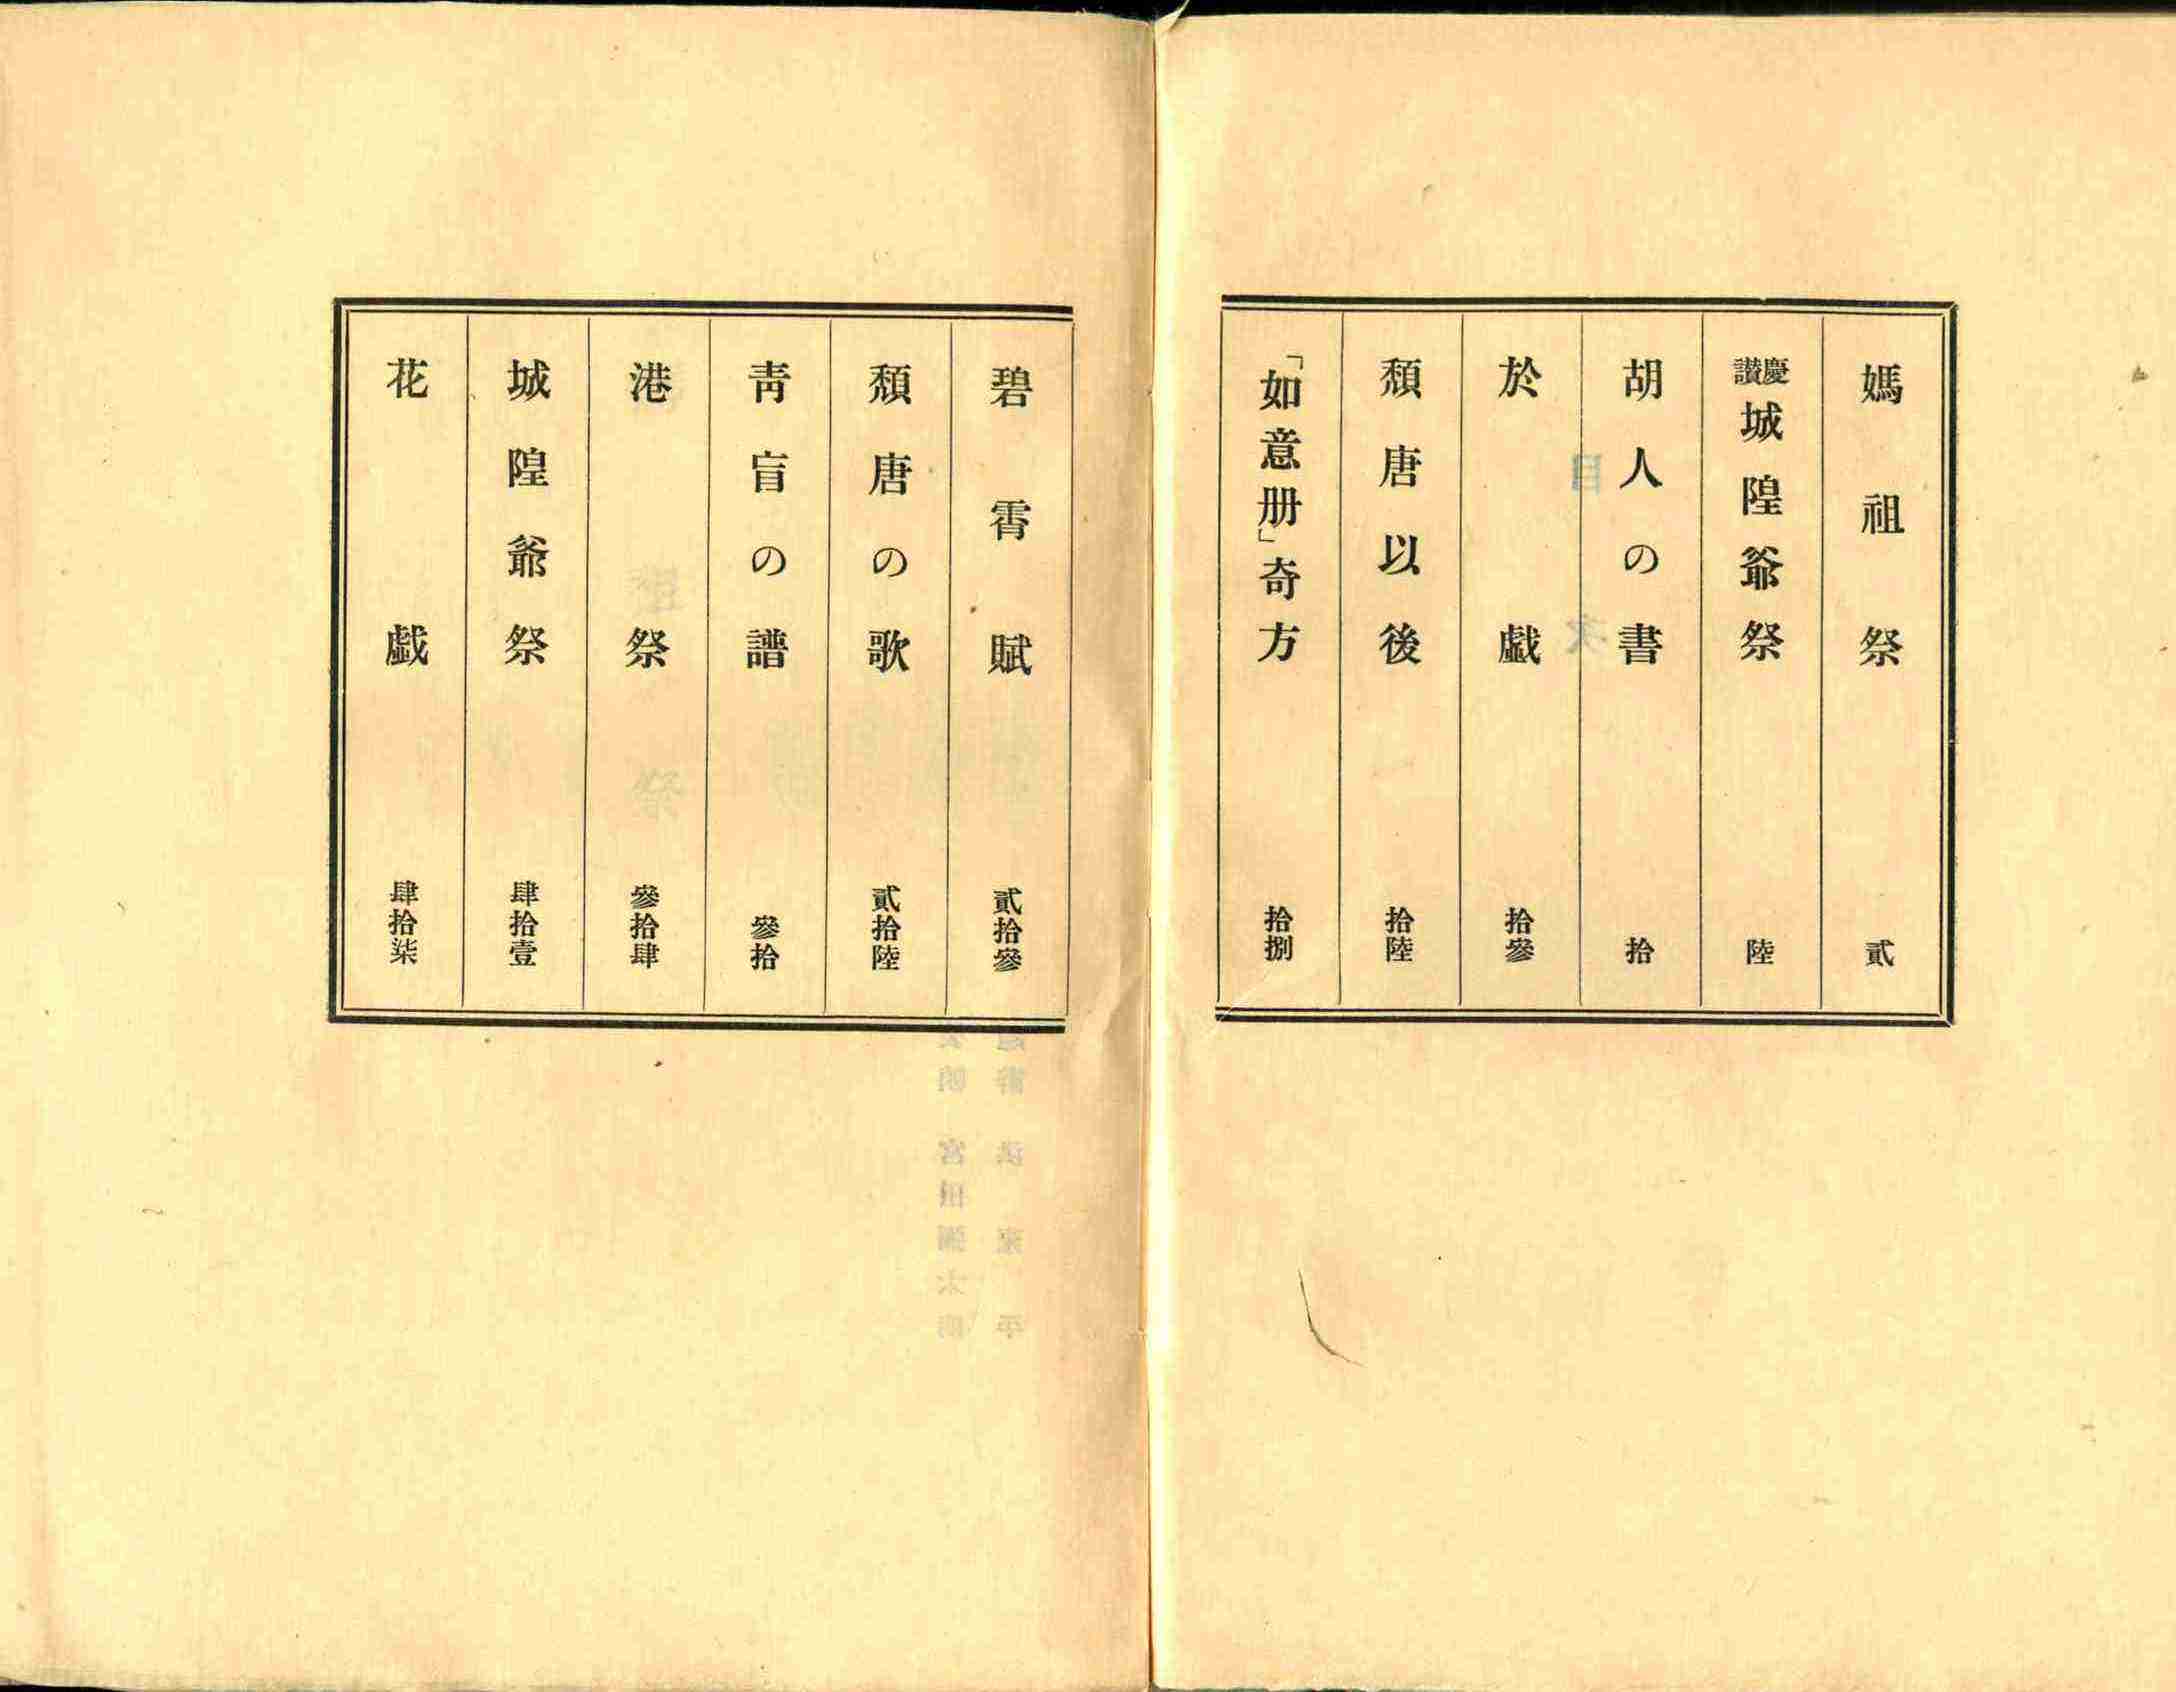 媽祖祭 貳
慶讃城隍爺祭 陸
胡人の書 拾
於戯 拾參
頽唐以後 拾陸
「如意册」奇方 拾捌
碧霄賦 貳拾參
頽唐の歌 貳拾陸
靑盲の譜 參拾
港祭 參拾肆
城隍爺祭 肆拾壹
花戯 肆拾柒